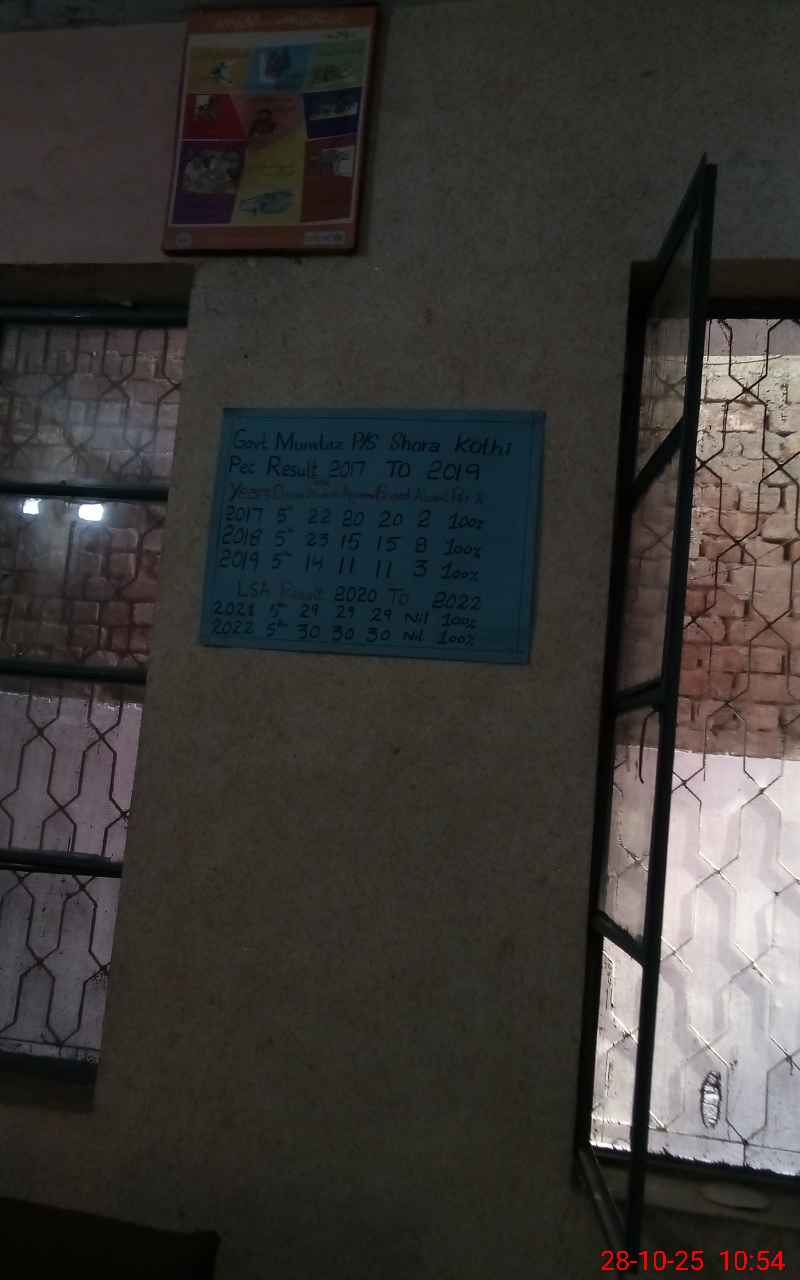 Govt Mumtaz P/S Shora Kothi
Pec Result 2017 To 2019
Years
2017 5th 22 20 20 2 100%
2018 5th 23 15 15 8 100%
2019 5th 14 11 11 3 100%
LSA Result 2020 To 2022
2021 5th 29 29 29 Nil 100%
2022 5th 30 30 30 Nil 100%
28-10-25 10:54